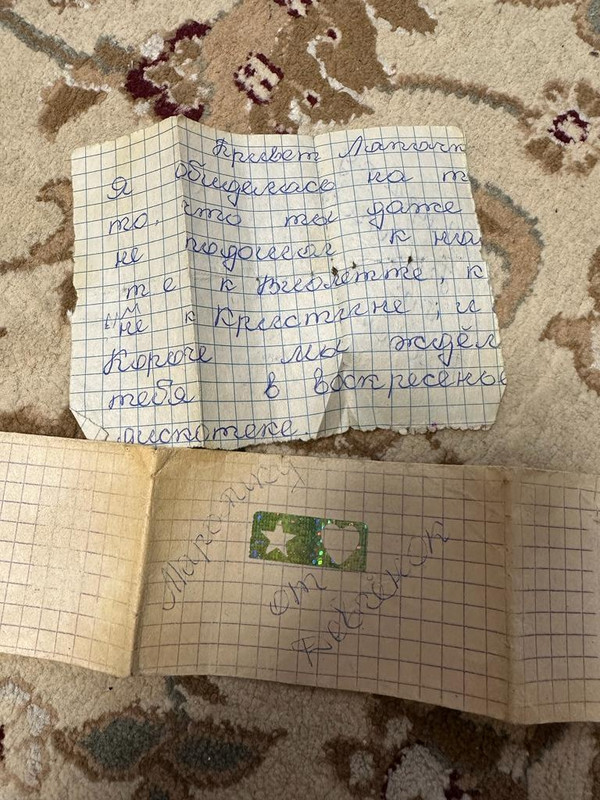 Привет Лапочк
Я обиделась на т
то, что ты даже
не подошол к на
те к Виолетте, к
не к Кристине; и
Короче мы ждём
тебя в воскресенье
дискотеке.
Маропику
от
Девчёнок